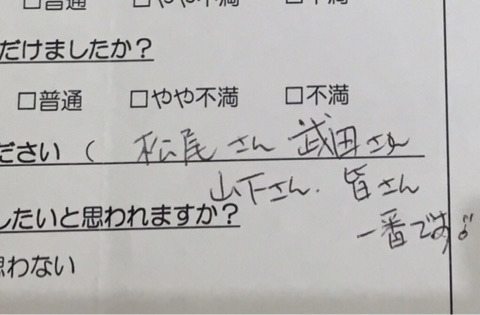 □普通 □やや不満
だけましたか？
□普通 □やや不満 □不満
ださい（ 松尾さん 武田さん
山下さん. 皆さん
したいと思われますか？
一番です♪
思わない